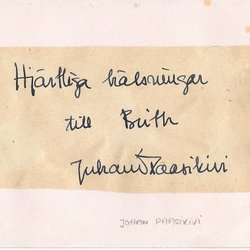 Hjärtliga hälsningar
till Britt
Juhani Paasikivi
JOHAN PAASIKIVI